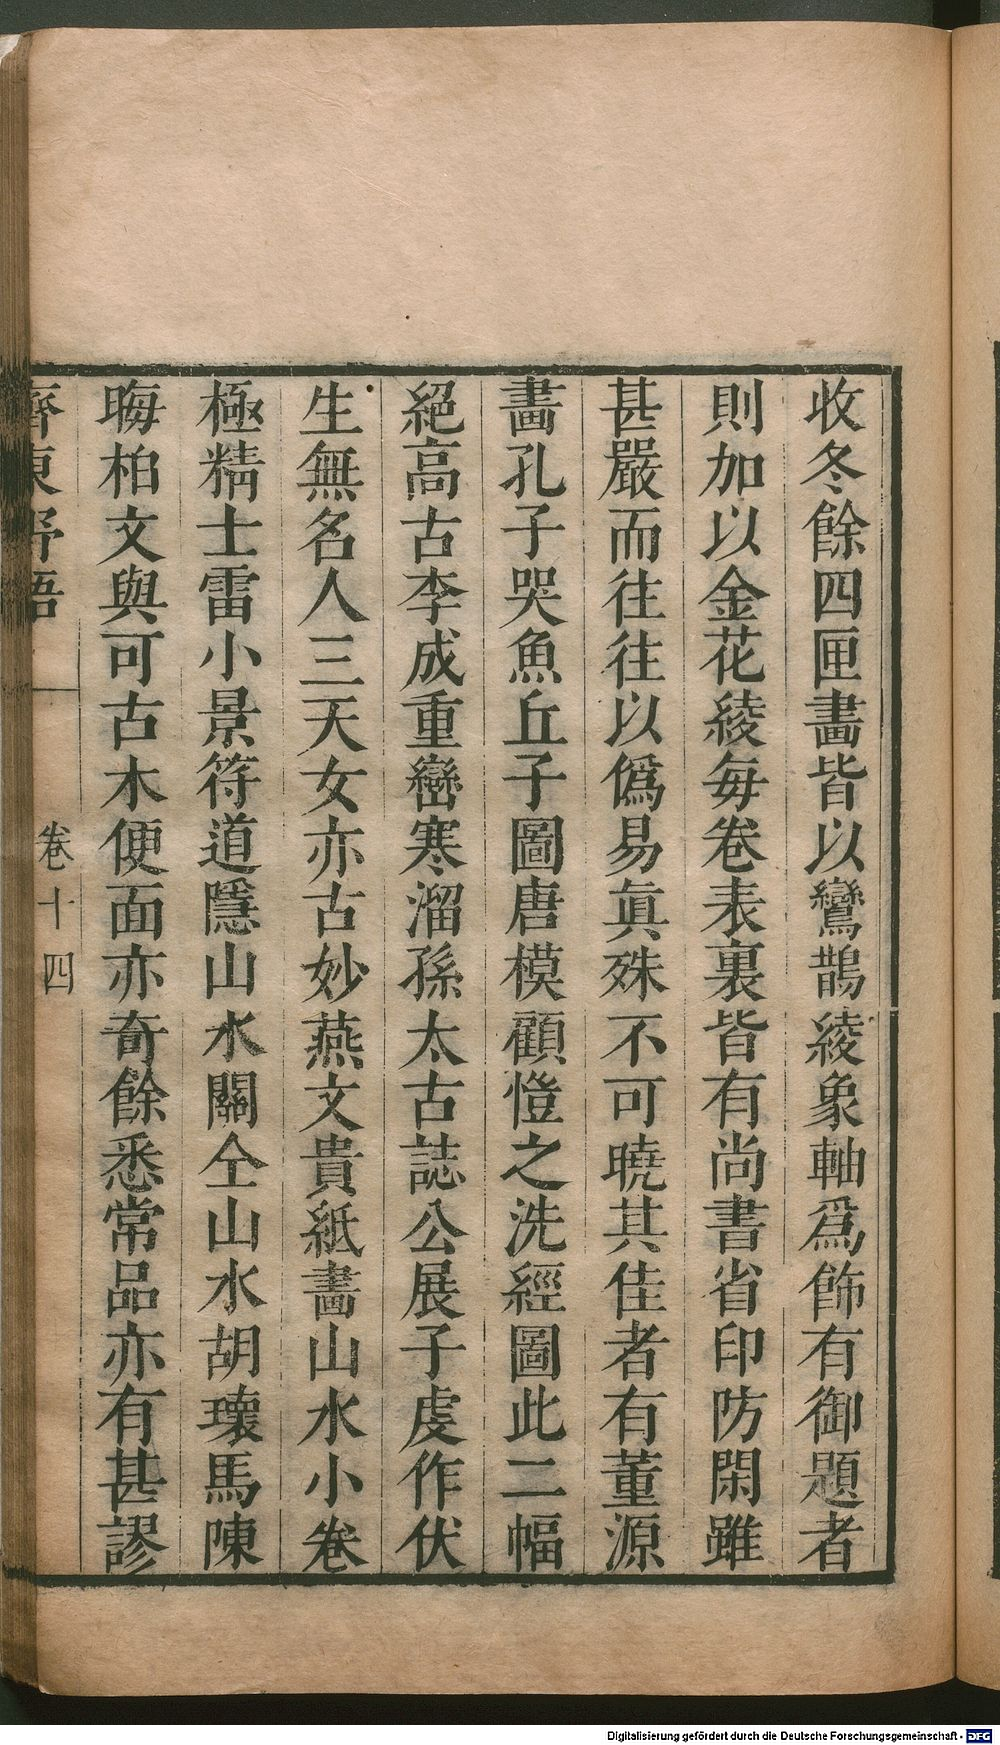 收冬餘四匣畵皆以鸞鵲綾象軸爲飾有御題者
則加以金花綾每卷表裏皆有尚書省印防閑雖
甚嚴而往往以僞易眞殊不可曉其佳者有董源
畵孔子哭魚丘子圖唐模顧愷之洗經圖此二幅
絕高古李成重巒寒溜孫太古誌公展子虔作伏
生無名人三天女亦古妙燕文貴紙畵山水小卷
極精士雷小景符道隱山水關仝山水胡瓌馬陳
晦柏文與可古木便面亦奇餘悉常品亦有甚謬
齊東野語 卷十四
Digitalisierung gefördert durch die Deutsche Forschungsgemeinschaft - DFG